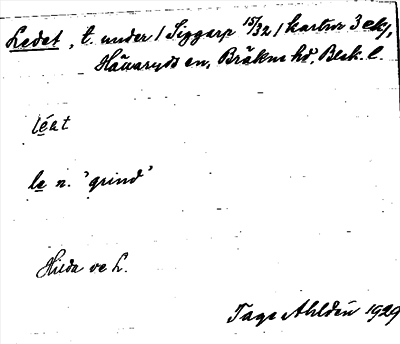 Ledet, t. under 1 Siggarp 15/32 1 kartnr 3 eky,
Hällaryds sn, Bräkne hd, Blek. l.
léat
le n. 'grind'
Hilda ve L.
Tage Ahldén 1929